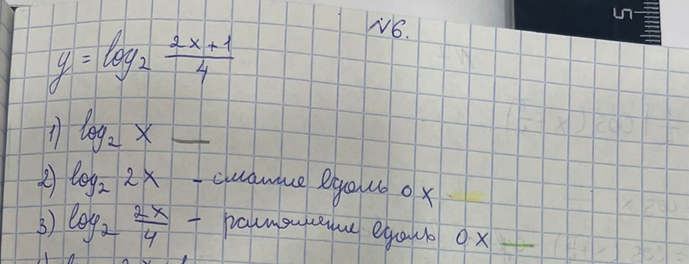 N6.
y = log₂ (2x+1)/4
1) log₂ x —
2) log₂ 2x - сжатие вдоль ox
3) log₂ 2x/4 - растяжение вдоль ox
5